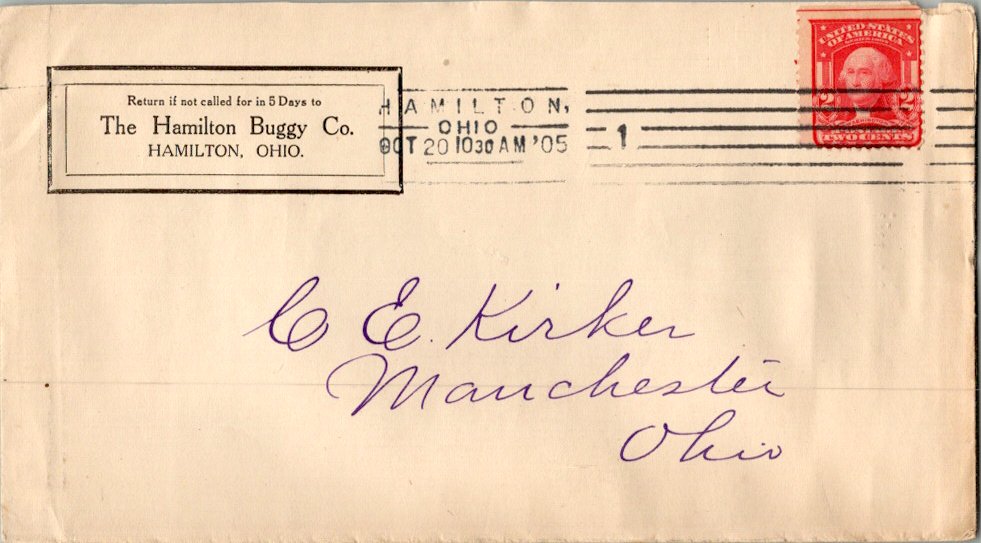 Return if not called for in 5 Days to
The Hamilton Buggy Co.
HAMILTON, OHIO.
HAMILTON,
OHIO
OCT 20 1030 AM '05
1
UNITED STATES
OF AMERICA
2 2
TWO CENTS
C E. Kirker
Manchester
Ohio